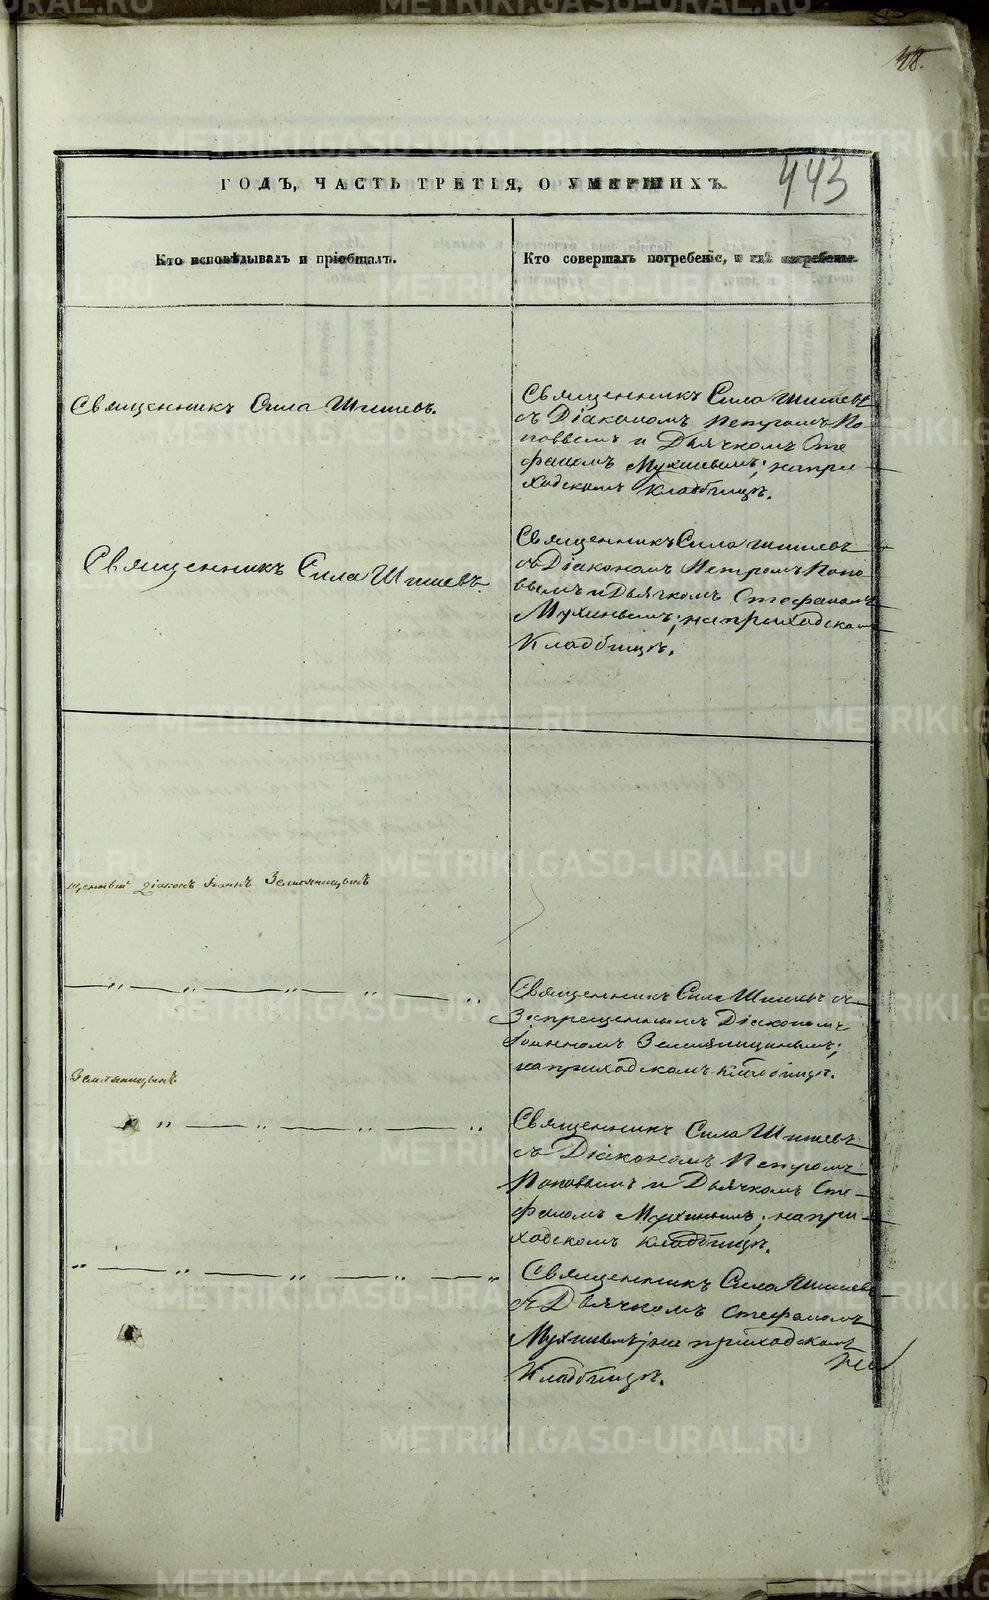 443
ГОДЪ, ЧАСТЬ ТРЕТІЯ, О УМЕРШИХЪ.
Кто исповѣдывалъ и пріобщалъ.
Кто совершалъ погребеніе, и гдѣ погребены.
Священникъ Сила Шишевъ.
Священникъ Сила Шишевъ
съ Діакономъ Петромъ По-
повымъ и Дьячкомъ Сте
фаномъ Мухинымъ; на при-
ходскомъ кладбищѣ.
Священникъ Сила Шишевъ.
Священникъ Сила Шишевъ
съ Діакономъ Петромъ Попо-
вымъ и Дьячкомъ Стефаномъ
Мухинымъ; на приходскомъ
Кладбищѣ.
щенный діаконъ Іоаннъ Земляницынъ
Священникъ Сила Шишевъ съ
Запрещеннымъ Діакономъ
Іоанномъ Земляницынымъ;
на приходскомъ кладбищѣ.
Земляницынъ
Священникъ Сила Шишевъ
съ Діакономъ Петромъ
Поповымъ и Дьячкомъ Сте-
фаномъ Мухинымъ; на при-
ходскомъ кладбищѣ.
Священникъ Сила Шишевъ
съ Дьячкомъ Стефаномъ
Мухинымъ; на приходскомъ
Кладбищѣ.
METRIKI.GASO-URAL.RU